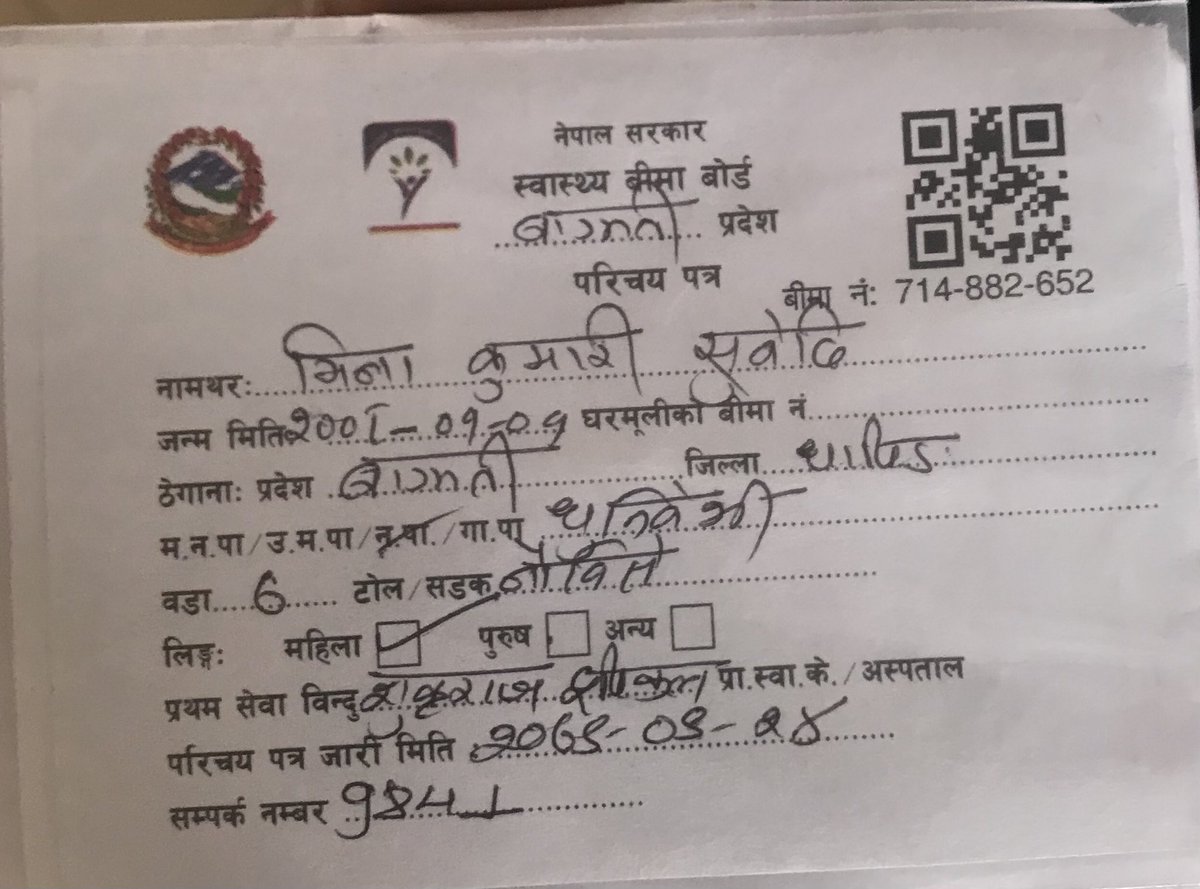 नेपाल सरकार
स्वास्थ्य बीमा बोर्ड
बागमती प्रदेश
परिचय पत्र
बीमा नं: 714-882-652
नामथर: मिना कुमारी सुवेदि
जन्म मिति घरमूलीको बीमा नं.
ठेगाना: प्रदेश बागमती जिल्ला धादिङ
म.न.पा/उ.म.पा/न.पा./गा.पा
वडा 6 टोल/सडक
लिङ्ग: महिला पुरुष अन्य
प्रथम सेवा विन्दु शुक्रराज प्रा.स्वा.के./अस्पताल
परिचय पत्र जारी मिति
सम्पर्क नम्बर